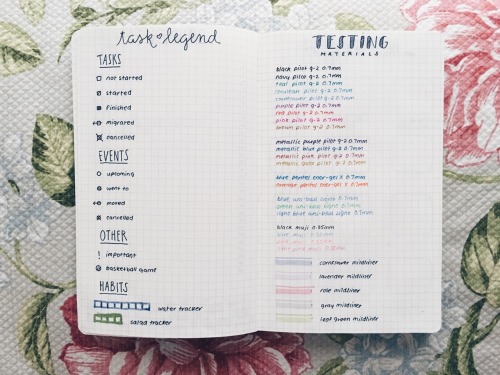 task legend
TASKS
not started
started
finished
migrated
cancelled
EVENTS
upcoming
went to
moved
cancelled
OTHER
! important
basketball game
HABITS
water tracker
salad tracker
TESTING
MATERIALS
black pilot g-2 0.7mm
navy pilot g-2 0.7mm
teal pilot g-2 0.7mm
cerulean pilot g-2 0.7mm
cornflower pilot g-2 0.7mm
purple pilot g-2 0.7mm
red pilot g-2 0.7mm
pink pilot g-2 0.7mm
brown pilot g-2 0.7mm
metallic purple pilot g-2 0.7mm
metallic blue pilot g-2 0.7mm
metallic pink pilot g-2 0.7mm
metallic gold pilot g-2 0.7mm
blue pentel ener-gel X 0.7mm
orange pentel ener-gel X 0.7mm
blue uni-ball signo 0.7mm
green uni-ball signo 0.7mm
light blue uni-ball signo 0.7mm
black muji 0.38mm
muji 0.38mm
muji 0.38mm
muji 0.38mm
cornflower mildliner
lavender mildliner
rose mildliner
gray mildliner
leaf green mildliner